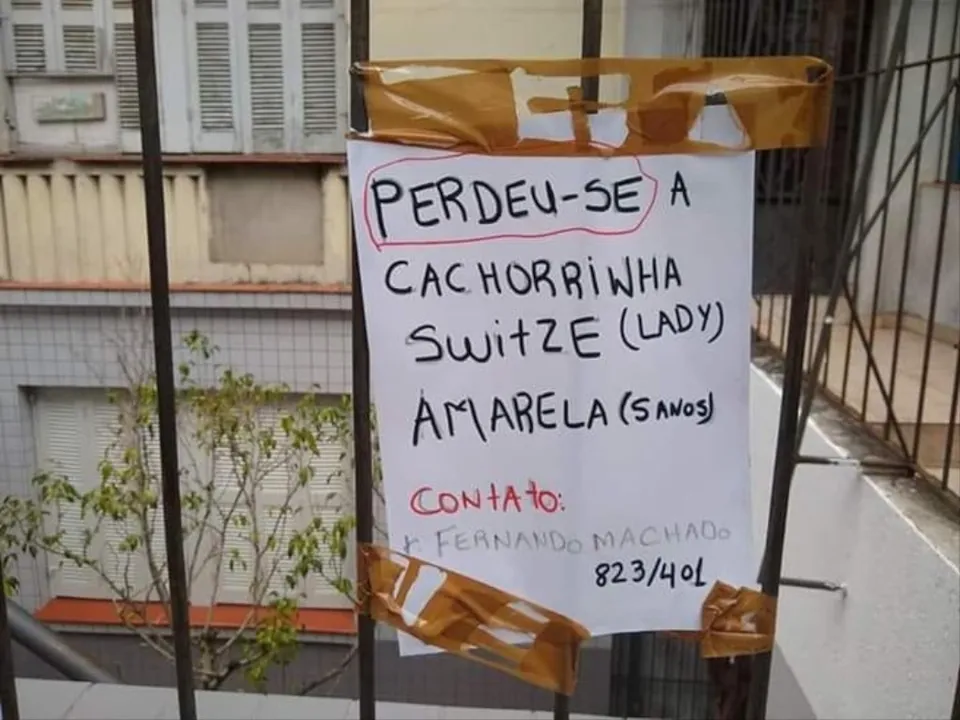 PERDEU-SE A
CACHORRiNHA
SWitZE (LADY)
AMARELA (5 ANOS)
CONTATO:
r. FERNANDO MACHADO
823/401